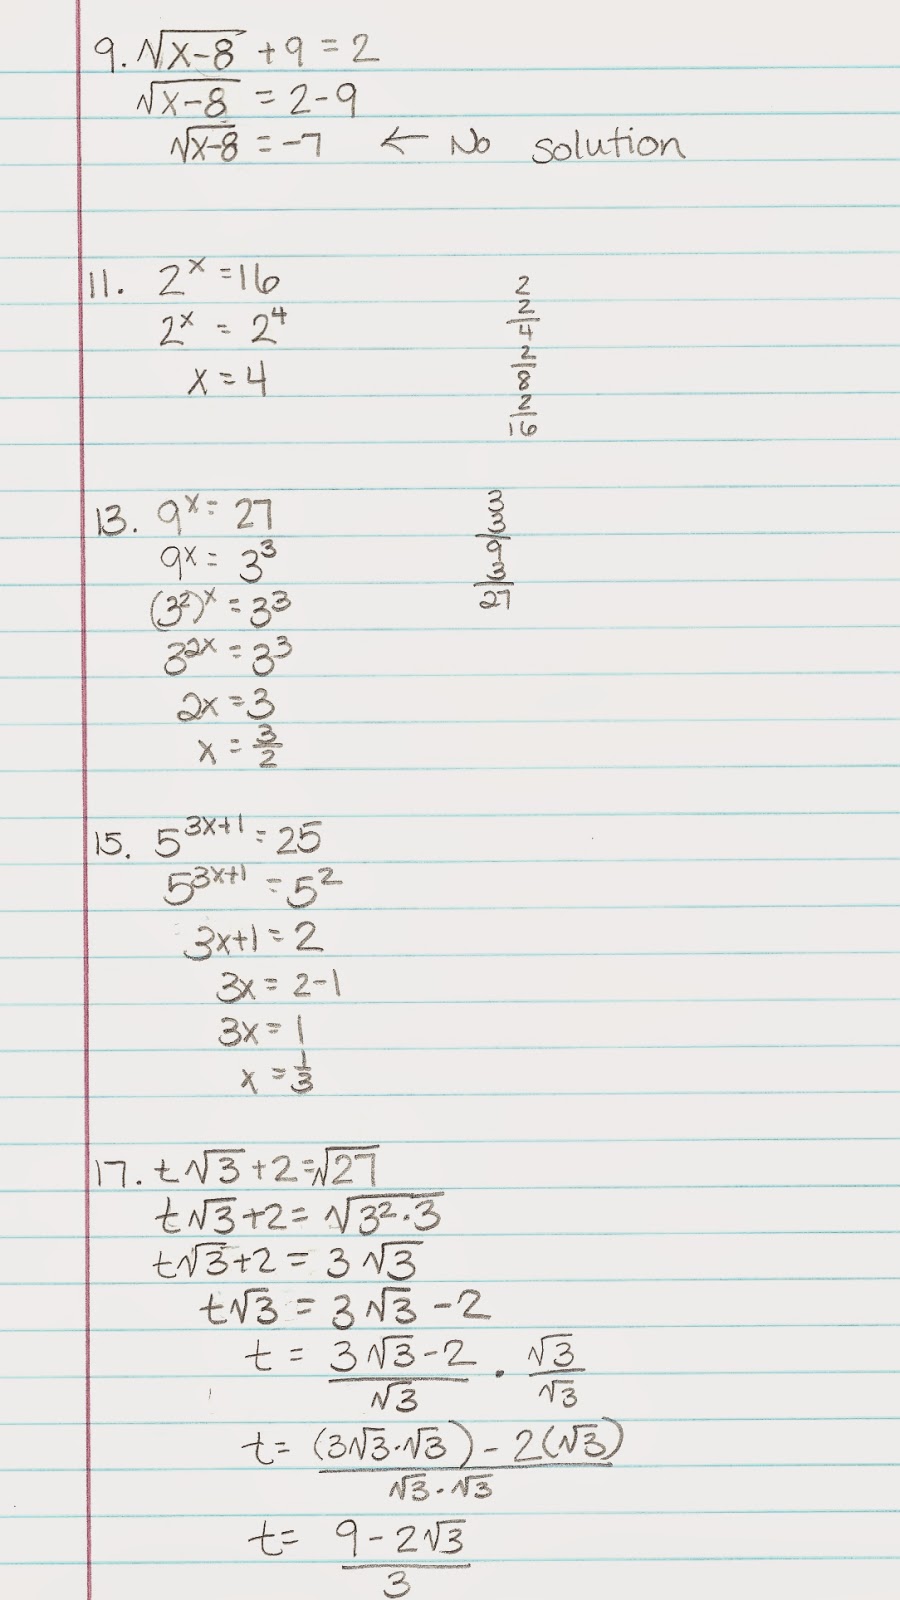 9. √(x-8) + 9 = 2
√(x-8) = 2-9
√(x-8) = -7 ← No solution
11. 2^x = 16
2^x = 2^4
x = 4
2
2
4
2
8
2
16
13. 9^x = 27
9^x = 3^3
(3^2)^x = 3^3
3^2x = 3^3
2x = 3
x = 3/2
3
3
9
3
27
15. 5^3x+1 = 25
5^3x+1 = 5^2
3x+1 = 2
3x = 2-1
3x = 1
x = 1/3
17. t√3 + 2 = √27
t√3 + 2 = √(3^2 · 3)
t√3 + 2 = 3√3
t√3 = 3√3 - 2
t = (3√3 - 2)/√3 · √3/√3
t = ((3√3 · √3) - 2(√3))/(√3 · √3)
t = (9 - 2√3)/3